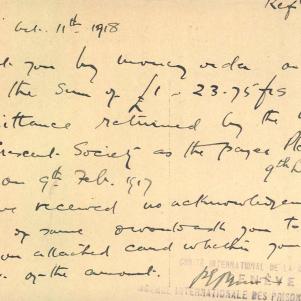 Ref
Oct. 11th 1918
you by money order on
the sum of £1 - 23.75 frs
ittance returned by the
rescent Society as the payee
on 9th Feb. 1917
ve received no acknowledgem
of same I would ask you to
on attached card whether you
of the amount.
COMITÉ INTERNATIONAL DE LA
GENÈVE
AGENCE INTERNATIONALE DES PRISON